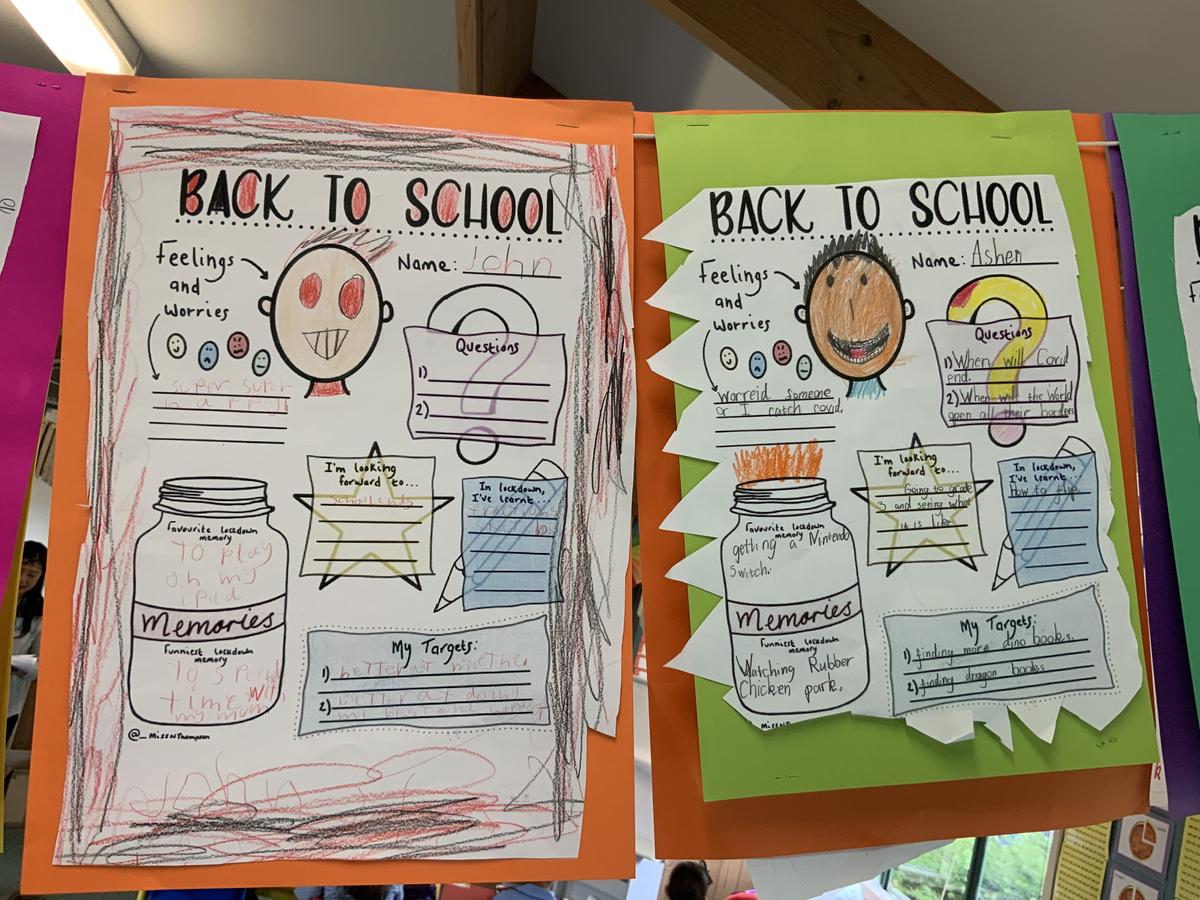 BACK TO SCHOOL
Feelings
and
Worries
Name: John
super super
happy
Questions
1)
2)
I'm looking
forward to...
school ends
In lockdown,
I've learnt...
fractions
Favourite lockdown
memory
To play
on my
ipad
Memories
Funniest lockdown
memory
To spend
time with
my mum
My Targets:
1) better at
2) better at doing
my best
@_MissNThompson
John
BACK TO SCHOOL
Feelings
and
Worries
Name: Ashen
Worreid someone
or I catch covid.
Questions
1) When will Covid
end.
2) When will the World
open all their borders
I'm looking
forward to...
Going to grade
5 and seeing what
it is like
In lockdown,
I've learnt...
How to flip
Favourite lockdown
memory
getting a Nintendo
Switch.
Memories
Funniest lockdown
memory
Watching Rubber
Chicken park.
My Targets:
1) finding more dino books.
2) finding dragon books
MissNThompson